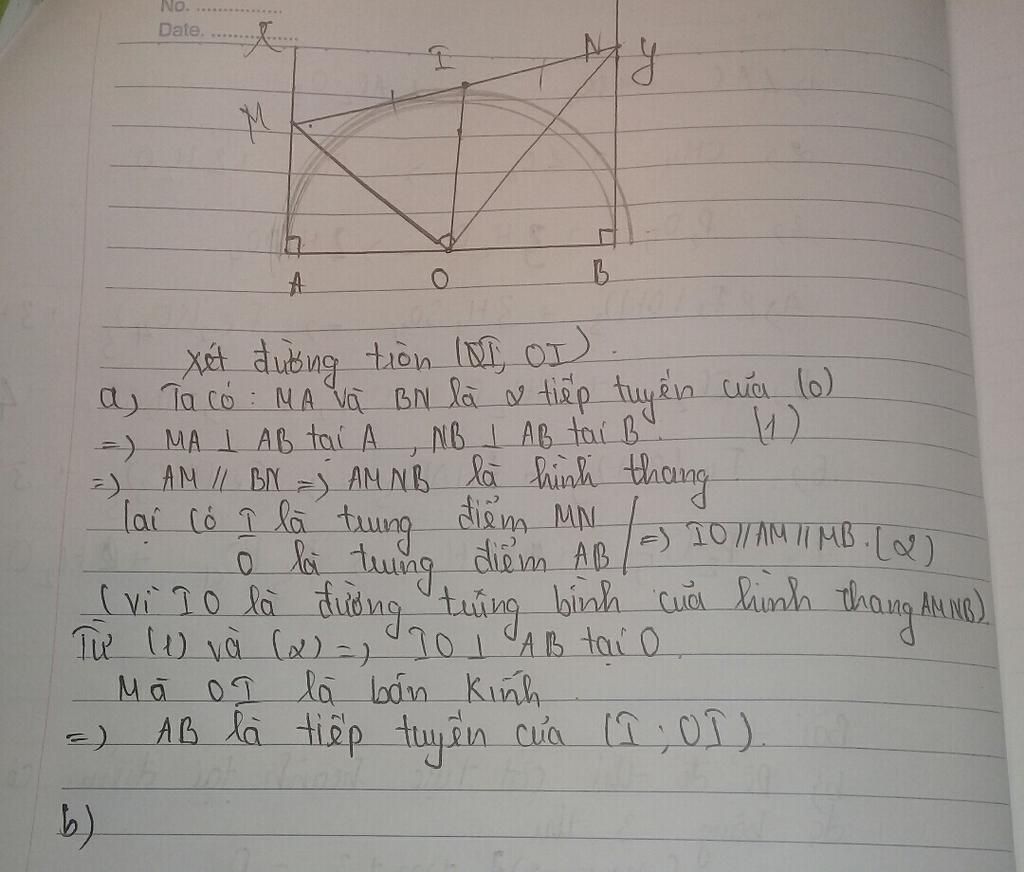 No. ................
Date. ................
x
I
N
y
M
A
O
B
Xét đường tròn (I, OI).
a, Ta có: MA và BN là 2 tiếp tuyến của (O)
=> MA ⊥ AB tại A, NB ⊥ AB tại B. (1)
=> AM // BN => AMNB là hình thang
lại có I là trung điểm MN
O là trung điểm AB
=> IO // AM // MB. (2)
(vì IO là đường trung bình của hình thang AMNB).
Từ (1) và (2) => IO ⊥ AB tại O.
Mà OI là bán kính.
=> AB là tiếp tuyến của (I; OI).
b)